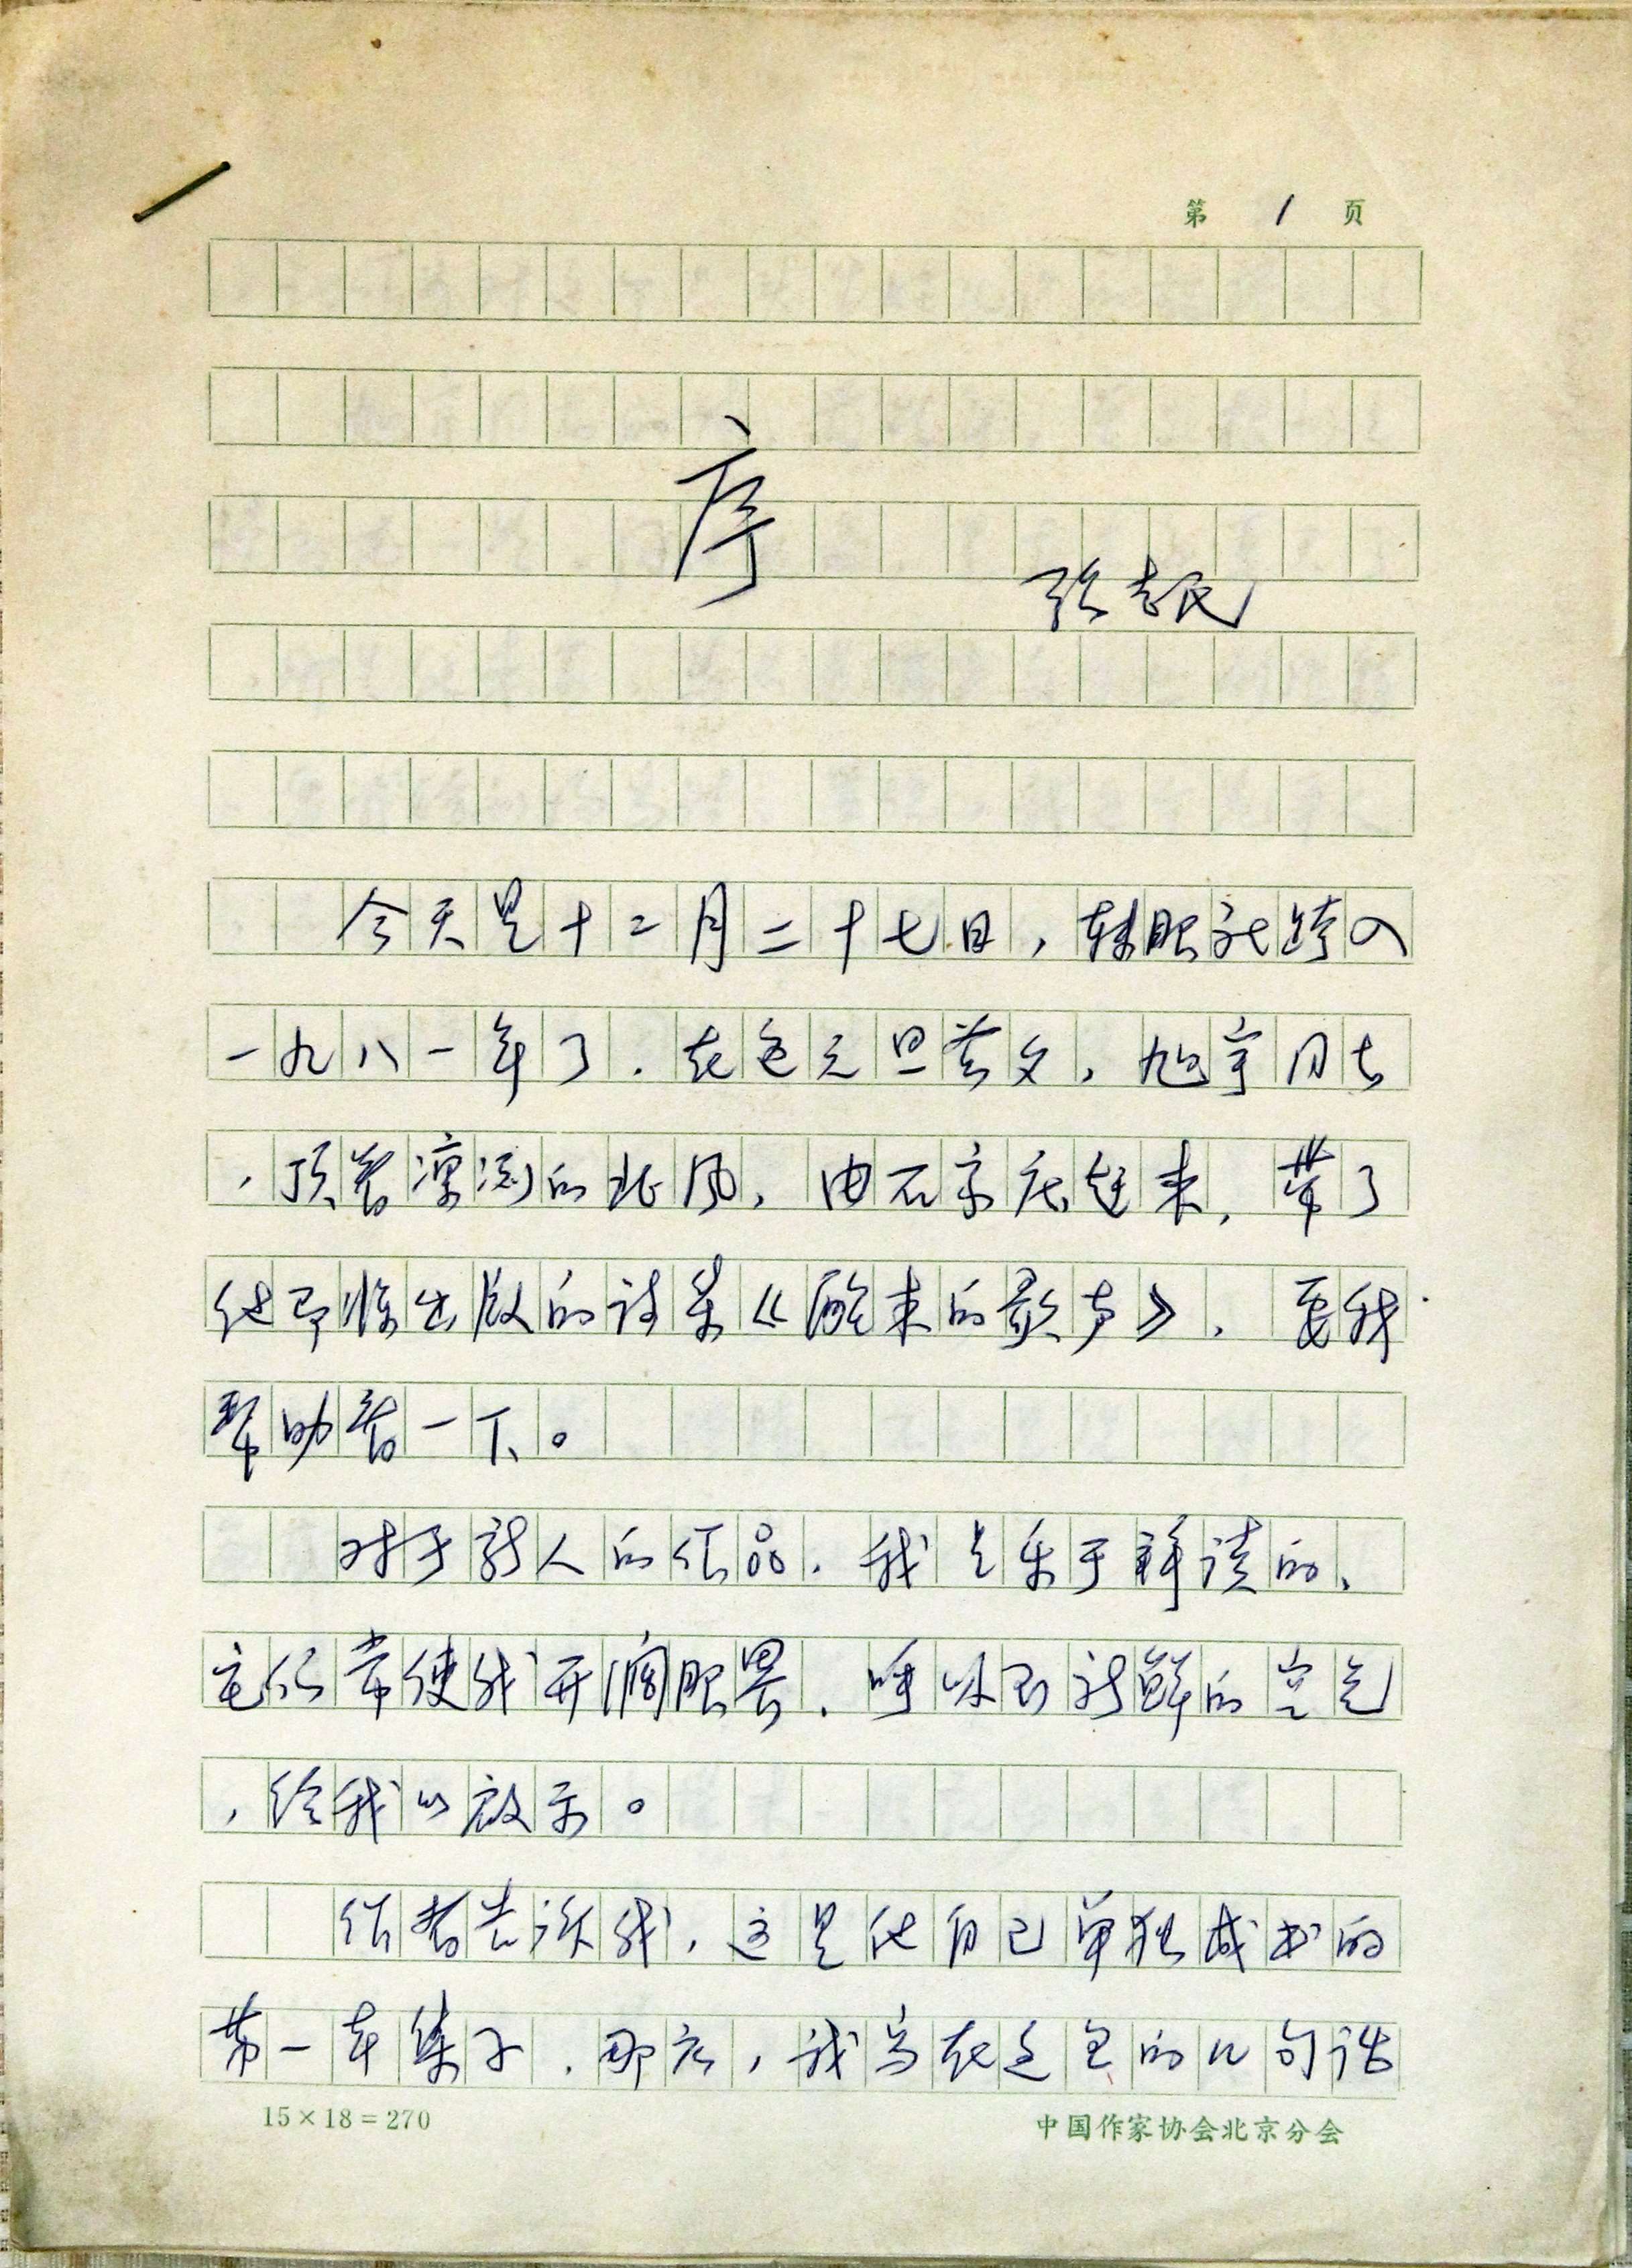 第 1 页
序
张志民
今天是十二月二十七日,转眼就跨入
一九八一年了.在这元旦前夕,旭宇同志
,顶着凛冽的北风,由石家庄赶来,带了
他即将出版的诗集《醒来的歌声》,要我
帮助看一下。
对于新人的作品.我是乐于拜读的,
它们常使我开阔眼界.呼吸到新鲜的空气
,给我以启示。
作者告诉我,这是他自己单独成书的
第一本集子.那么,我写在这里的几句话
15×18=270
中国作家协会北京分会